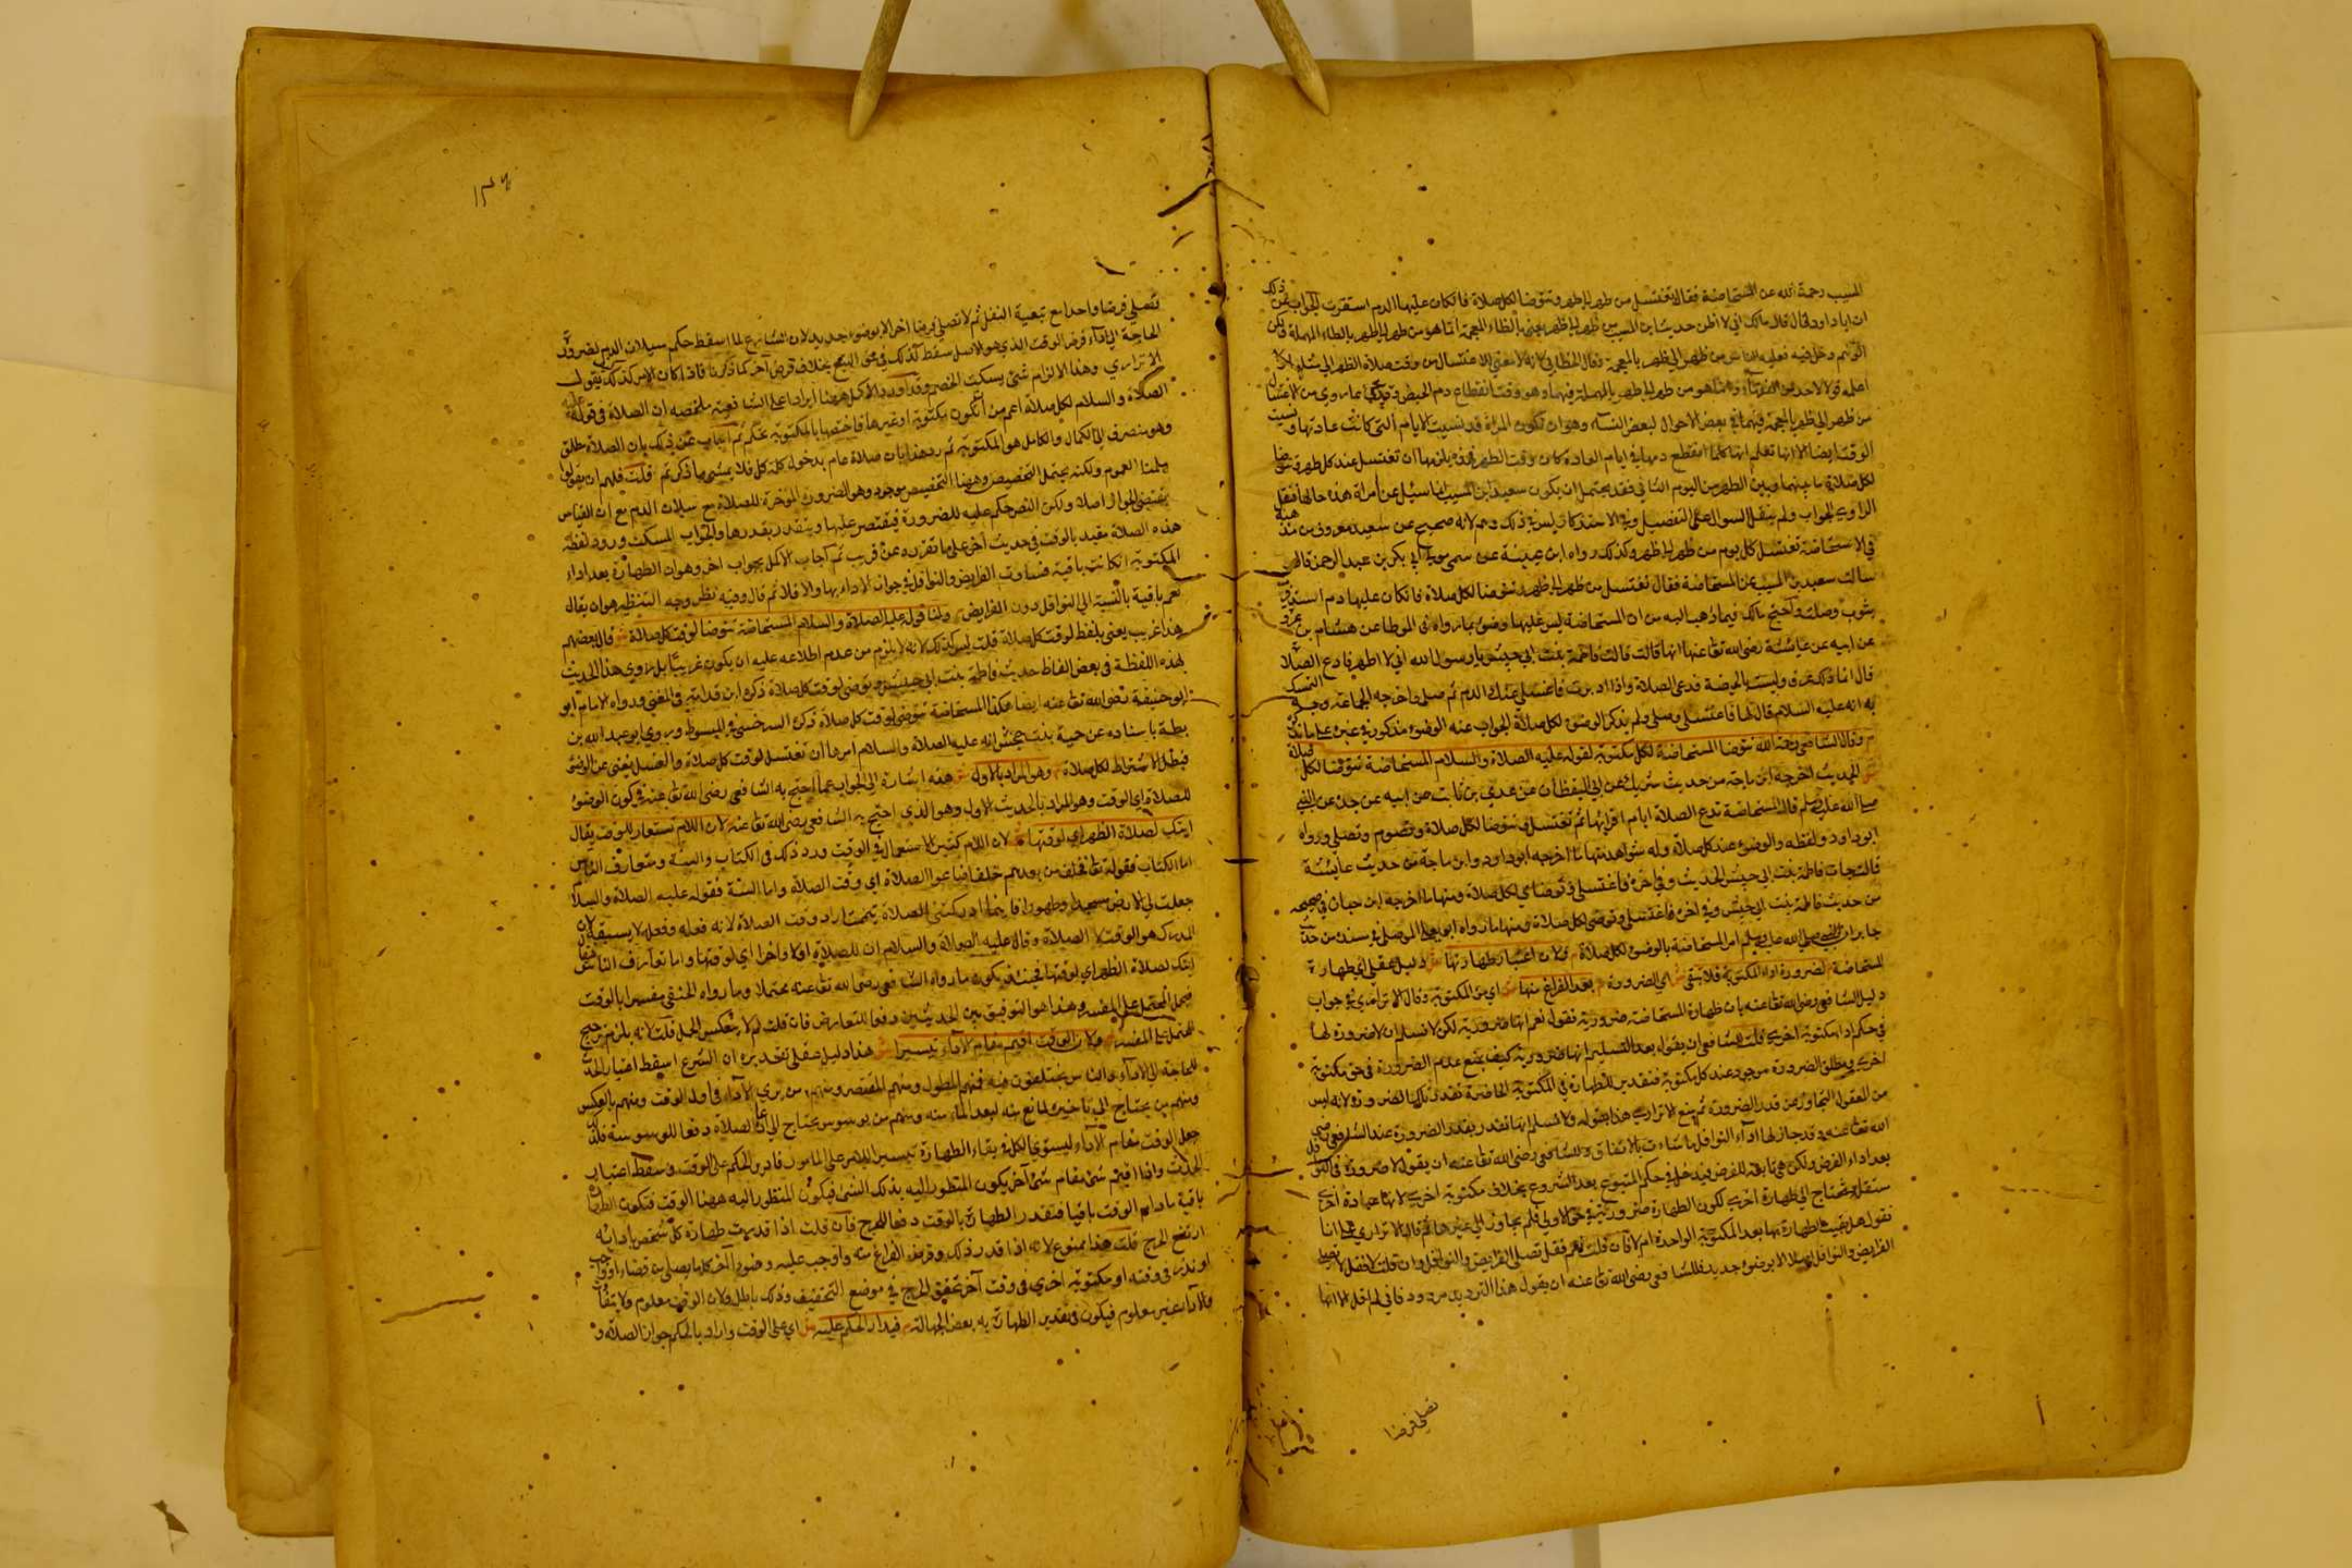 المسيب رحمة الله عن المستحاضة فقال تغتسل من طهر الى طهر وتتوضا لكل صلاة فان كان عليها الدم استثفرت الجواب عن ذلك
ان ابا داود قال قال مالك اني لا اظن حديث ابن المسيب من ظهر الى ظهر يعني بالظاء المعجمة انما هو من طهر الى طهر بالطاء المهملة ولكن
الوهم دخل فيه فقلبه الناس من ظهر الى ظهر بالمعجمة وقال الخطابي لانه لا معنى للاغتسال من وقت صلاة الظهر الى مثلها ولا
اعلمه قولا لاحد من الفقهاء وانما هو من طهر الى طهر بالمهملة فيهما وهو وقت انقطاع دم الحيض وقد يجئ ما روي من الاغتسال
من ظهر الى ظهر بالمعجمة فيهما في بعض الاحوال لبعض النساء وهو ان تكون المراة قد نسيت الايام التي كانت عادتها ونسيت
الوقت ايضا الا انها تعلم انها كلما انقطع دمها في ايام العادة كان وقت الظهر فهذه يلزمها ان تغتسل عند كل ظهر وتتوضا
لكل صلاة ما بينهما وبين الظهر من اليوم الثاني فقد يحتمل ان يكون سعيد ابن المسيب انما سئل عن امراة هذه حالها فنقل
الراوي الجواب ولم ينقل السوال على التفصيل وفي الاستذكار ليس في ذلك وهم لانه صحيح عن سعيد معروف من مذهبه
في الاستحاضة تغتسل كل يوم من ظهر الى ظهر وكذلك رواه ابن عيينة عن سمى مولى ابي بكر بن عبد الرحمن قال
سالت سعيد بن المسيب عن المستحاضة فقال تغتسل من ظهر الى ظهر وتتوضا لكل صلاة فان كان عليها دم استذفرت
بثوب وصلت واحتج مالك فيما ذهب اليه من ان المستحاضة ليس عليها وضوء بما رواه في الموطا عن هشام بن عروة
عن ابيه عن عايشة رضى الله تعالى عنها انها قالت قالت فاطمة بنت ابي حبيش يا رسول الله اني لا اطهر فادع الصلاة
قال انما ذلك عرق وليست بالحيضة فدعي الصلاة واذا ادبرت فاغتسلي عنك الدم ثم صلي واخرجه الجماعة وجه التمسك
به انه عليه السلام قال لها فاغتسلي وصلي ولم يذكر الوضوء لكل صلاة الجواب عنه الوضوء مذكور في غيره على ما ذكرنا
م وقال الشافعى رحمه الله تتوضا المستحاضة لكل مكتوبة لقوله عليه الصلاة والسلام المستحاضة تتوضا لكل صلاة
ش الحديث اخرجه ابن ماجة من حديث شريك عن ابي اليقظان عن عدي بن ثابت عن ابيه عن جده عن النبي
صلى الله عليه وسلم قال المستحاضة تدع الصلاة ايام اقرائها ثم تغتسل وتتوضا لكل صلاة وتصوم وتصلي ورواه
ابو داود ولفظه والوضوء عند كل صلاة وله شواهد منها ما اخرجه ابو داود وابن ماجة من حديث عايشة
قالت جاءت فاطمة بنت ابي حبيش الحديث وفي اخره فاغتسلي وتوضاى لكل صلاة ومنها ما اخرجه ابن حبان في صحيحه
من حديث فاطمة بنت ابي حبيش وفي اخره فاغتسلي وتوضى لكل صلاة ومنها ما رواه ابو يعلى الموصلي في مسنده من حديث
جابر ان النبي صلى الله عليه وسلم امر المستحاضة بالوضوء لكل صلاة م ولان اعتبار طهارتها ش دليل عقلي اي طهارة
المستحاضة م لضرورة اداء المكتوبة فلا تبقى ش اي الضرورة م بعد الفراغ منها ش اي من المكتوبة وقال الاترازي في جواب
دليل الشافعى رضى الله تعالى عنه بان طهارة المستحاضة ضرورية نقول نعم انها ضرورية لكن لا نسلم ان لا ضرورة لها
في حكم اداء مكتوبة اخرى قلت للشافعى ان يقول بعد التسليم انها ضرورية كيف يمنع عدم الضرورة في حق مكتوبة
اخرى ومطلق الضرورة موجود عند كل مكتوبة فتقدير الطهارة في المكتوبة الحاضرة تقدر تلك الضرورة لانه ليس
من المعقول التجاوز عن قدر الضرورة ثم منع الاترازي هذا بقوله ولا نسلم انها تقدر بقدر الضرورة عند الشافعى رضى
الله تعالى عنه وقد جاز لها اداء النوافل ما شاءت بالاتفاق وللشافعى رضى الله تعالى عنه ان يقول لا ضرورة في النوافل
بعد اداء الفرض ولكن هي تابعة للفرض فيدخل في حكم المتبوع بعد الشروع بخلاف مكتوبة اخرى لانها عبادة اخرى
مستقلة فتحتاج الى طهارة اخرى لكون الطهارة ضرورية في حق الاولى فلم يجاوز الى غيرها ثم قال الاترازي على انا
نقول هل بقيت طهارتها بعد المكتوبة الواحدة ام لا فان قلت نعم فقل تصلى الفرايض والنوافل وان قلت لا فقل لا تصلي
الفرايض والنوافل اصلا الا بوضوء جديد فللشافعى رضى الله تعالى عنه ان يقول هذا الترديد مردود فاني لم اقل الا انها
تصلي فرضا
١٣٤
تصلي فرضا واحدا مع تبعية النفل ثم لا تصلي فرضا اخر الا بوضوء جديد لان الشارع لما اسقط حكم سيلان الدم لضرورة
الحاجة الى اداء فرض الوقت الذي هو الاصل سقط كذلك في حق التبع بخلاف فرض آخر كما ذكرنا فاذا كان الامر كذلك فيقول
الاترازي وهذا الالزام شئ يسكت الخصم وقد اورد الاكمل ههنا ايرادا على الشافعية ملخصه ان الصلاة في قوله عليه
الصلاة والسلام لكل صلاة اعم من ان تكون مكتوبة او غيرها فاختصاصها بالمكتوبة تحكم ثم اجاب عن ذلك بان الصلاة مطلق
وهو ينصرف الى الكمال والكامل هو المكتوبة ثم رد هذا بان صلاة عام بدخول كلمة كل فلا يتمشى ما ذكر ثم قلت فلهم ان يقولوا
سلمنا العموم ولكنه يحتمل التخصيص وههنا التخصيص موجود وهو الضرورة المؤخرة للصلاة مع سيلان الدم مع ان القياس
يقتضى الجواز اصلا ولكن النص حكم عليه للضرورة فيقتصر عليها ويتقدر بقدرها والجواب المسكت ورود لفظة
هذه الصلاة مقيد بالوقت في حديث آخر على ما تقرره عن قريب ثم اجاب الاكمل بجواب اخر وهو ان الطهارة بعد اداء
المكتوبة ان كانت باقية فساوت الفرايض والنوافل في جواز الاداء بها والا فلا ثم قال وفيه نظر وجه التنظير هو ان يقال
نعم باقية بالنسبة الى النوافل دون الفرايض م ولنا قوله عليه الصلاة والسلام المستحاضة تتوضا لوقت كل صلاة ش قال بعضهم
هذا غريب يعني بلفظ لوقت كل صلاة قلت ليس كذلك لانه لا يلزم من عدم اطلاعه عليه ان يكون غريبا بل روي هذا الحديث
بهذه اللفظة في بعض الفاظ حديث فاطمة بنت ابي حبيش وتوضى لوقت كل صلاة ذكره ابن قدامة في المغني ورواه الامام ابو
ابو حنيفة رضى الله تعالى عنه ايضا هكذا المستحاضة تتوضى لوقت كل صلاة ذكره السرخسي في المبسوط وروي ابو عبد الله بن
بطة باسناده عن حمنة بنت جحش انه عليه الصلاة والسلام امرها ان تغتسل لوقت كل صلاة والغسل يغنى عن الوضوء
فبطل الاشتراط لكل صلاة م وهو المراد بالاول ش هذه اشارة الى الجواب عما احتج به الشافعى رضى الله تعالى عنه في كون الوضوء
للصلاة اي الوقت وهو المراد بالحديث الاول وهو الذي احتج به الشافعى رضى الله تعالى عنه م لان اللام تستعار للوقت يقال
اتيتك لصلاة الظهر اي لوقتها ش لان اللام كثير الاستعمال في الوقت ورد ذلك في الكتاب والسنة ومتعارف الناس
اما الكتاب فقوله تعالى فخلف من بعدهم خلف اضاعوا الصلاة اي وقت الصلاة واما السنة فقوله عليه الصلاة والسلام
جعلت لي الارض مسجدا وطهورا فاينما ادركتني الصلاة تيممت اراد وقت الصلاة لانه فعله وفعله لا يسبقه لان
المدرك هو الوقت لا الصلاة وقال عليه الصلاة والسلام ان للصلاة اولا واخرا اي لوقتها واما تعارف الناس فيقال
اتيتك لصلاة الظهر اي لوقتها فحينئذ يكون ما رواه الشافعى رضى الله تعالى عنه محتملا وما رواه الحنفي مفسرا بالوقت
فحمل المحتمل على المفسر وهذا هو التوفيق بين الحديثين دفعا للتعارض فان قلت لم لا ينعكس الحمل قلت لانه يلزم ترجيح
المحتمل على المفسر م ولان الوقت اقيم مقام الاداء تيسيرا ش هذا دليل عقلي تقديره ان الشرع اسقط اعتبار الحدث
للحاجة الى الاداء والناس مختلفون فيه فمنهم المطول ومنهم المقتصر ومنهم من يرى الاداء في اول الوقت ومنهم بالعكس
ومنهم من يحتاج الى تاخيره لمانع منه لبعد الماء منه ومنهم من يوسوس يحتاج الى اعادة الصلاة دفعا للوسوسة فلذلك
جعل الوقت مقام الاداء ليستوي الكل في بقاء الطهارة تيسيرا للامر على المامور فادير الحكم على الوقت وسقط اعتبار
الحدث واذا اقيم شئ مقام شئ آخر يكون المنظور اليه بذلك الشئ فيكون المنظور اليه ههنا الوقت فتكون الطهارة
باقية ما دام الوقت باقيا فتقدر الطهارة بالوقت دفعا للحرج فان قلت اذا قدرت طهارة كل شخص بادائه
ارتفع الحرج قلت هذا ممنوع لانه اذا قدر ذلك وفرض الفراغ منه واوجب عليه وضوء آخر كلما يصلى من قضاء او واجب
او نذر في وقته او مكتوبة اخرى في وقت آخر تحقق الحرج في موضع التخفيف وذلك باطل ولان الوقت معلوم ولا يتفاوت
والاداء غير معلوم فيكون في تقدير الطهارة به بعض الجهالة م فيدار الحكم عليه ش اي على الوقت واراد بالحكم جواز الصلاة و